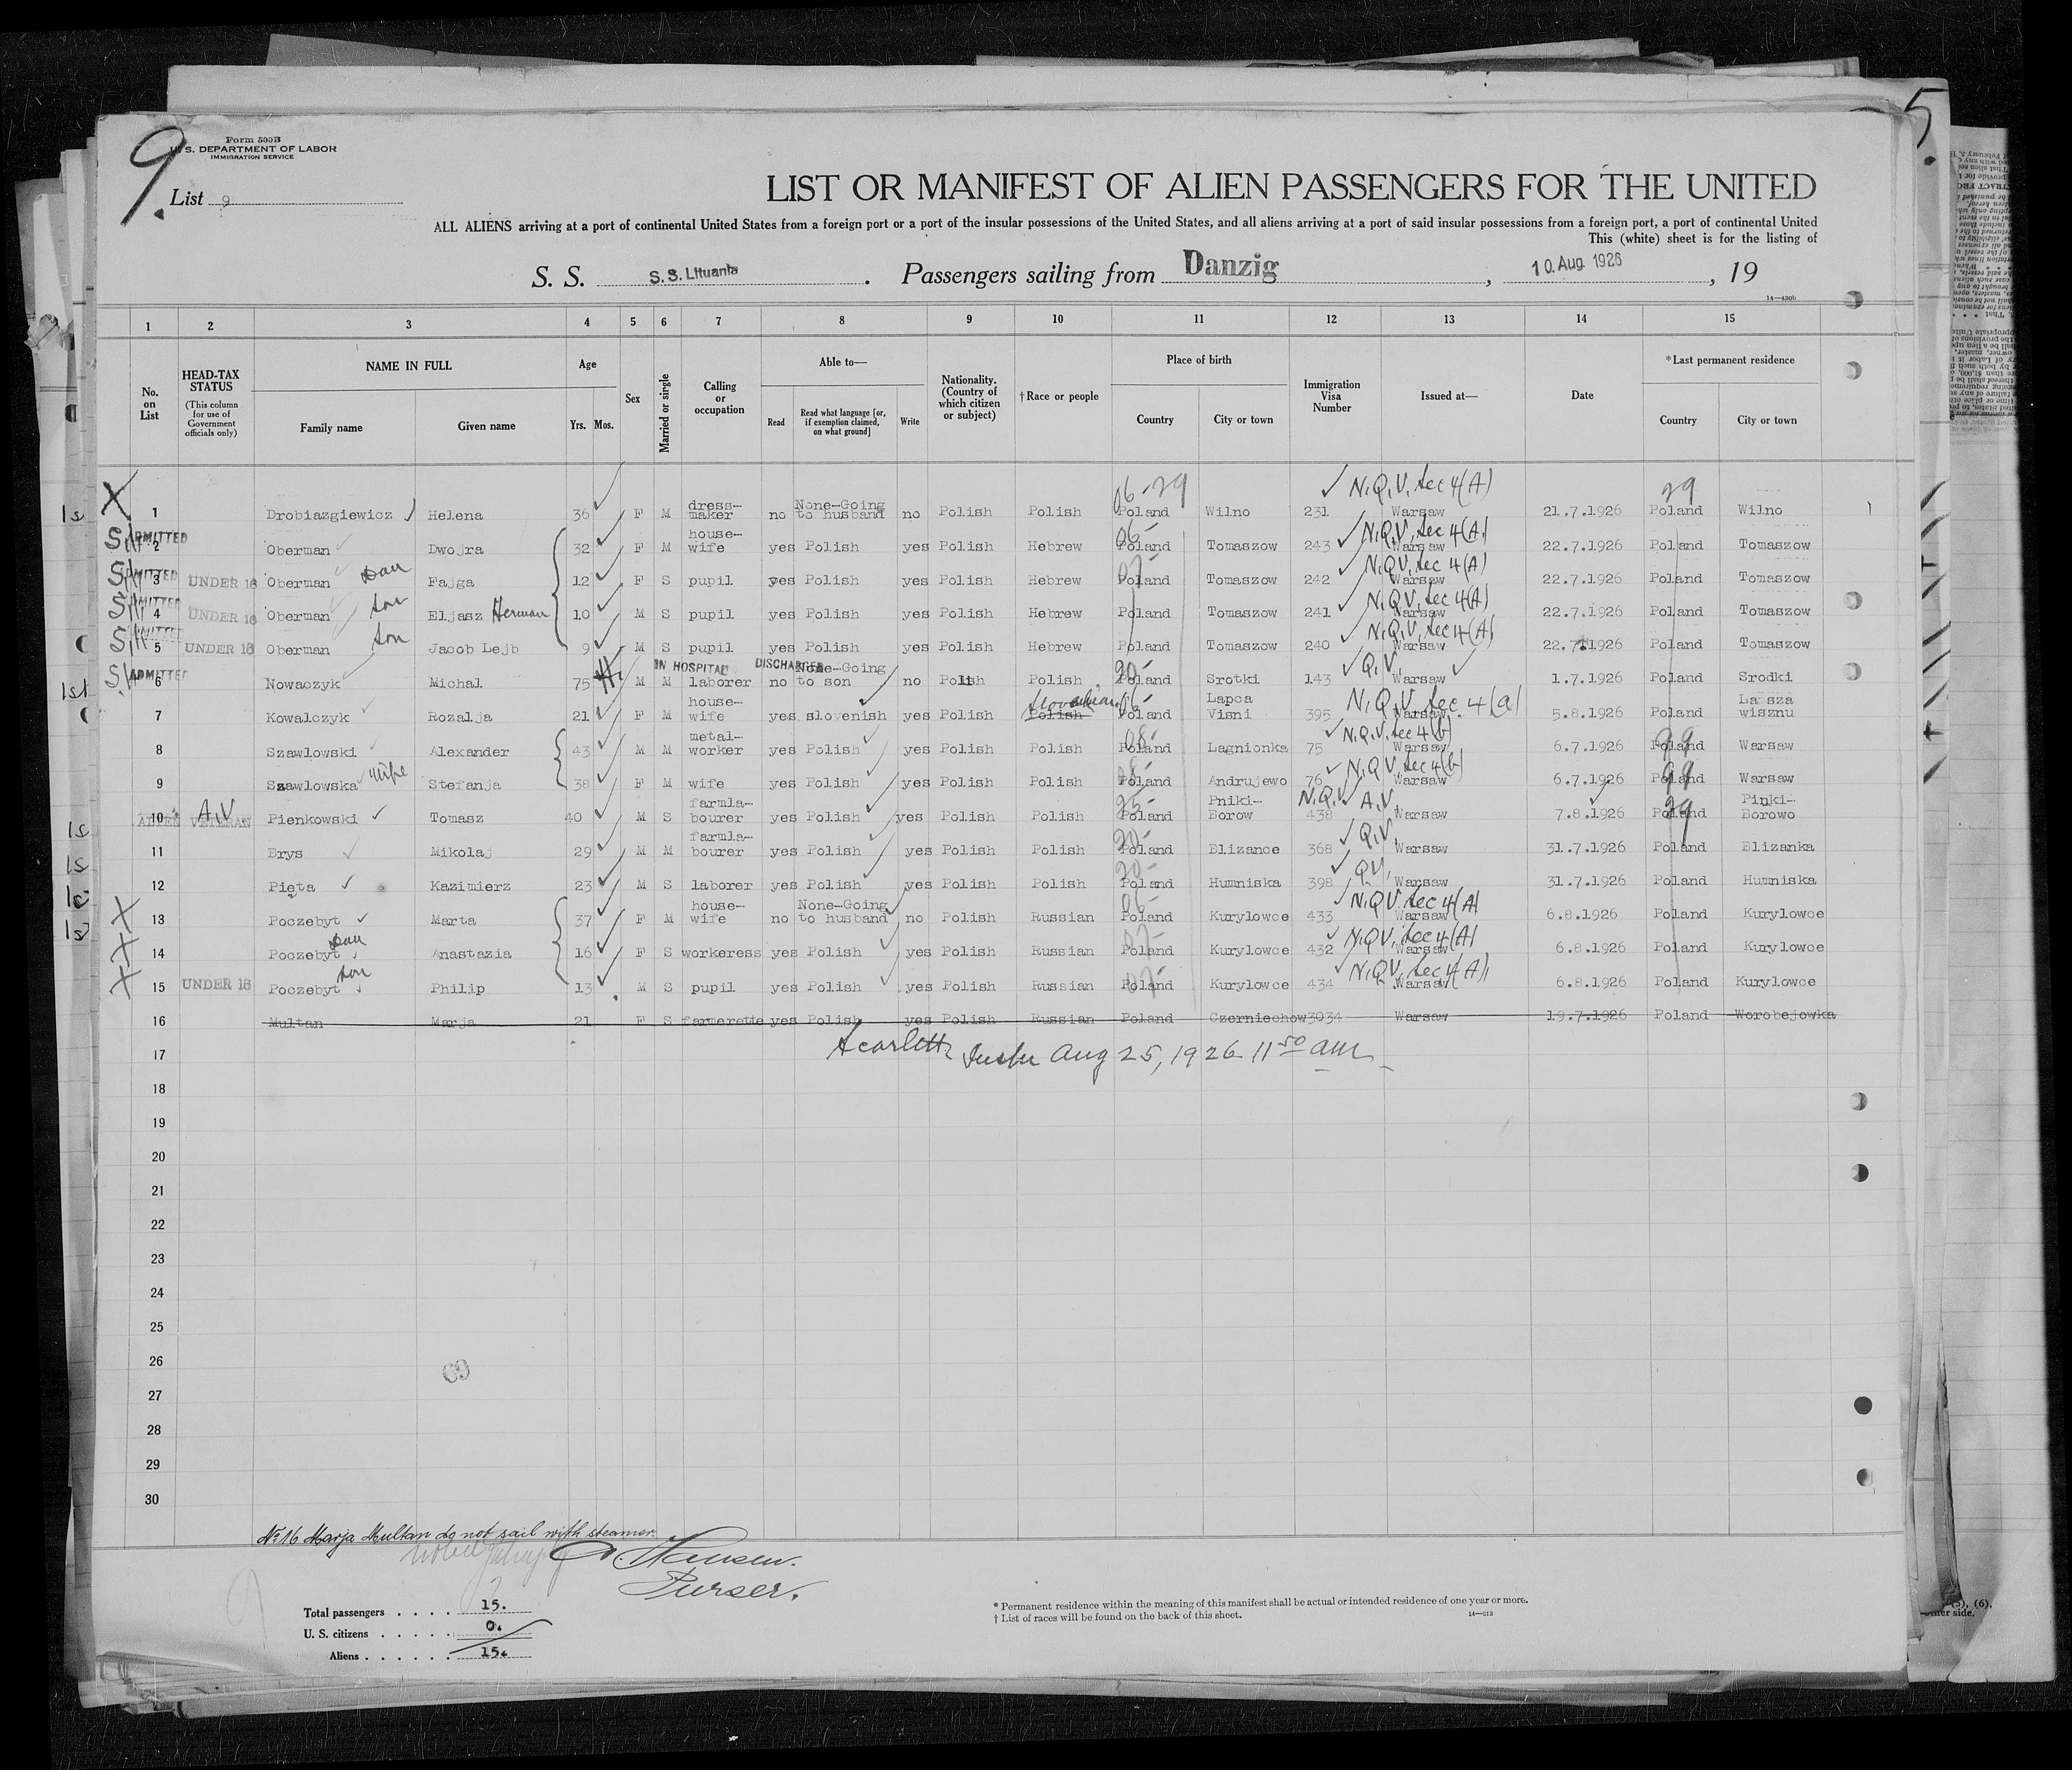 9.
5.
Form 500B
U. S. DEPARTMENT OF LABOR
IMMIGRATION SERVICE
List 9
LIST OR MANIFEST OF ALIEN PASSENGERS FOR THE UNITED
ALL ALIENS arriving at a port of continental United States from a foreign port or a port of the insular possessions of the United States, and all aliens arriving at a port of said insular possessions from a foreign port, a port of continental United
This (white) sheet is for the listing of
S. S. S.S. Lituania. Passengers sailing from Danzig, 10. Aug 1926, 19
14—430b
1 2 3 4 5 6 7 8 9 10 11 12 13 14 15
No. on List
HEAD-TAX STATUS
(This column for use of Government officials only)
NAME IN FULL
Family name
Given name
Age
Yrs. Mos.
Sex
Married or single
Calling or occupation
Able to—
Read
Read what language [or, if exemption claimed, on what ground]
Write
Nationality. (Country of which citizen or subject)
†Race or people
Place of birth
Country
City or town
Immigration Visa Number
Issued at—
Date
*Last permanent residence
Country
City or town
X 1 Drobiazgiewicz Helena 36 F M dress-maker no None-Going to husband no Polish Polish 06-29 Poland Wilno 231 N.Q.V. sec 4(A) Warsaw 21.7.1926 29 Poland Wilno
ADMITTED 2 Oberman Dwojra 32 F M house-wife yes Polish yes Polish Hebrew 06- Poland Tomaszow 243 N.Q.V. sec 4(A) Warsaw 22.7.1926 Poland Tomaszow
ADMITTED 3 UNDER 16 Oberman Dau Fajga 12 F S pupil yes Polish yes Polish Hebrew 07- Poland Tomaszow 242 N.Q.V. sec 4(A) Warsaw 22.7.1926 Poland Tomaszow
ADMITTED 4 UNDER 16 Oberman son Eljasz Herman 10 M S pupil yes Polish yes Polish Hebrew Poland Tomaszow 241 N.Q.V. sec 4(A) Warsaw 22.7.1926 Poland Tomaszow
ADMITTED 5 UNDER 16 Oberman son Jacob Lejb 9 M S pupil yes Polish yes Polish Hebrew Poland Tomaszow 240 N.Q.V. sec 4(A) Warsaw 22.7.1926 Poland Tomaszow
ADMITTED 6 Nowaczyk Michal 75 IN HOSPITAL DISCHARGED M M laborer no None-Going to son no Polish Polish 20- Poland Srotki 143 Q.V. Warsaw 1.7.1926 Poland Srodki
7 Kowalczyk Rozalja 21 F M house-wife yes slovenish yes Polish Polish 06- Poland Lapca Visni 395 N.Q.V. sec 4(a) Warsaw 5.8.1926 Poland Lapsza wisznu
8 Szawlowski Alexander 43 M M metal-worker yes Polish yes Polish Polish 08- Poland Lagnionka 75 N.Q.V. sec 4(b) Warsaw 6.7.1926 99 Poland Warsaw
9 Szawlowska wife Stefanja 38 F M wife yes Polish yes Polish Polish 08- Poland Andrujewo 76 N.Q.V. sec 4(b) Warsaw 6.7.1926 99 Poland Warsaw
10 A.V. ALIEN VETERAN Pienkowski Tomasz 40 M S farmla-bourer yes Polish yes Polish Polish 25- Poland Pniki-Borow 438 N.Q.V. A.V. Warsaw 7.8.1926 29 Poland Pinki-Borowo
11 Brys Mikolaj 29 M M farmla-bourer yes Polish yes Polish Polish 20- Poland Blizance 368 Q.V. Warsaw 31.7.1926 Poland Blizanka
12 Pięta Kazimierz 23 M S laborer yes Polish yes Polish Polish 20- Poland Humniska 398 Q.V. Warsaw 31.7.1926 Poland Humniska
X 13 Poczebyt Marta 37 F M house-wife no None-Going to husband no Polish Russian 06- Poland Kurylowce 433 N.Q.V. sec 4(A) Warsaw 6.8.1926 Poland Kurylowce
X 14 Poczebyt Dau Anastazia 16 F S workeress yes Polish yes Polish Russian 07- Poland Kurylowce 432 N.Q.V. sec 4(A) Warsaw 6.8.1926 Poland Kurylowce
X 15 UNDER 16 Poczebyt son Philip 13 M S pupil yes Polish yes Polish Russian 07- Poland Kurylowce 434 N.Q.V. sec 4(A) Warsaw 6.8.1926 Poland Kurylowce
16 Multan Marja 21 F S farmerette yes Polish yes Polish Russian Poland Czerniechow 3034 Warsaw 19.7.1926 Poland Worobejowka
17 Scarlett Aug 25, 1926 11 50 am
18
19
20
21
22
23
24
25
26
27
28
29
30
№ 16 Marja Multan do not sail with steamer.
Hansen.
Purser.
Total passengers . . . . 15.
U. S. citizens . . . . . 0.
Aliens . . . . . . 15.
* Permanent residence within the meaning of this manifest shall be actual or intended residence of one year or more.
† List of races will be found on the back of this sheet.
14—213